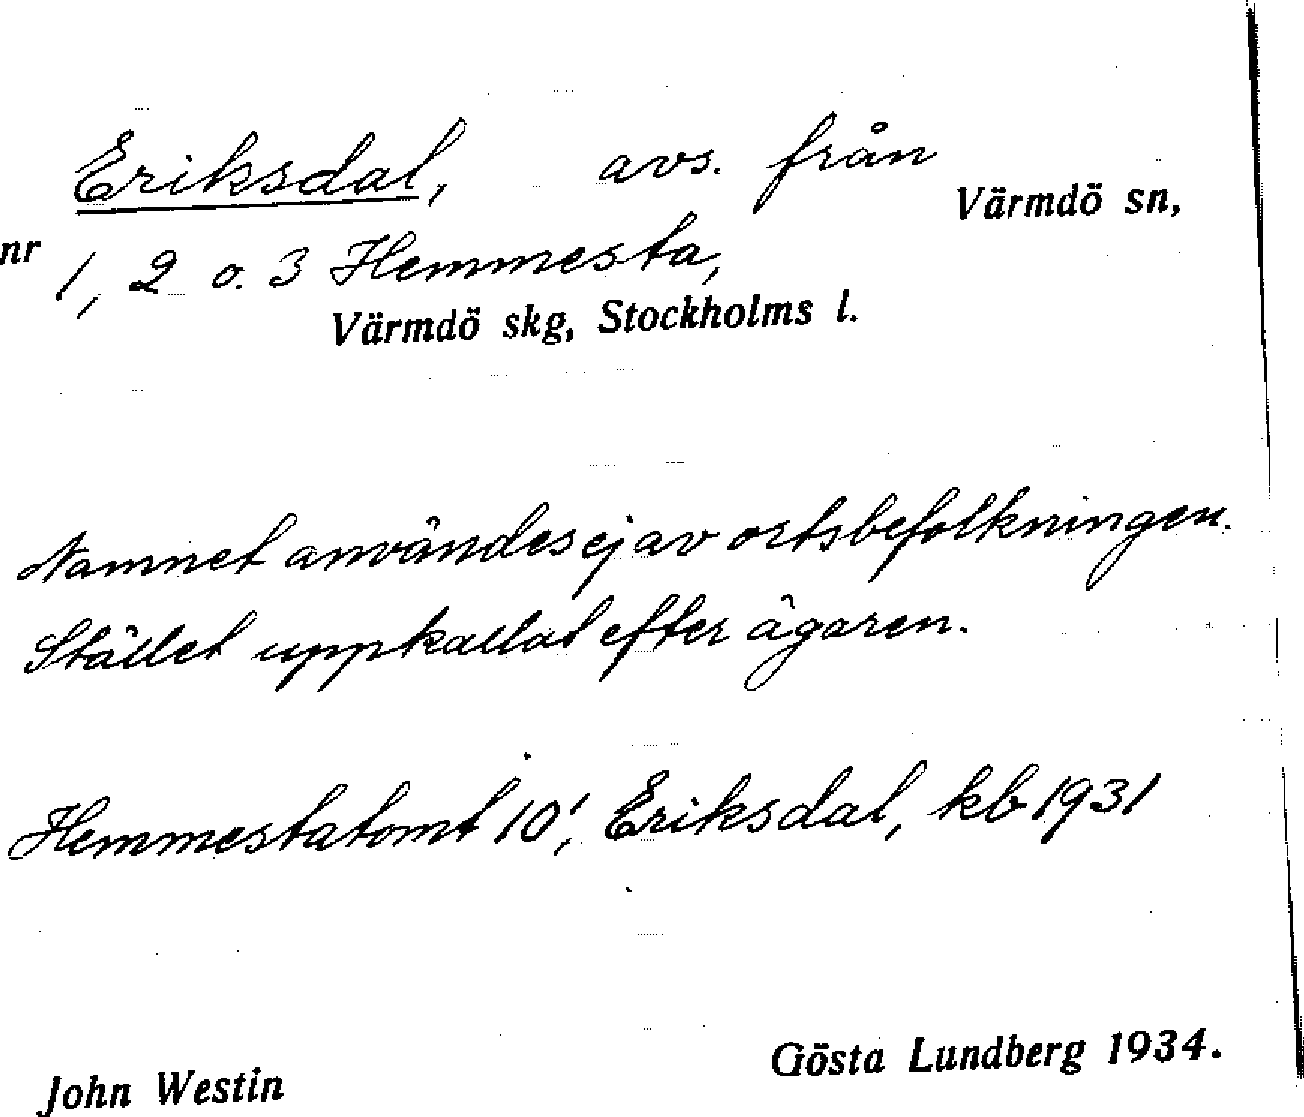 Eriksdal, avs. från
Värmdö sn,
nr 1, 2 o. 3 Hemmesta,
Värmdö skg, Stockholms l.
Namnet användes ej av ortsbefolkningen.
Stället uppkallat efter ägaren.
Hemmestatomt 10', Eriksdal, kb 1931
Gösta Lundberg 1934.
John Westin